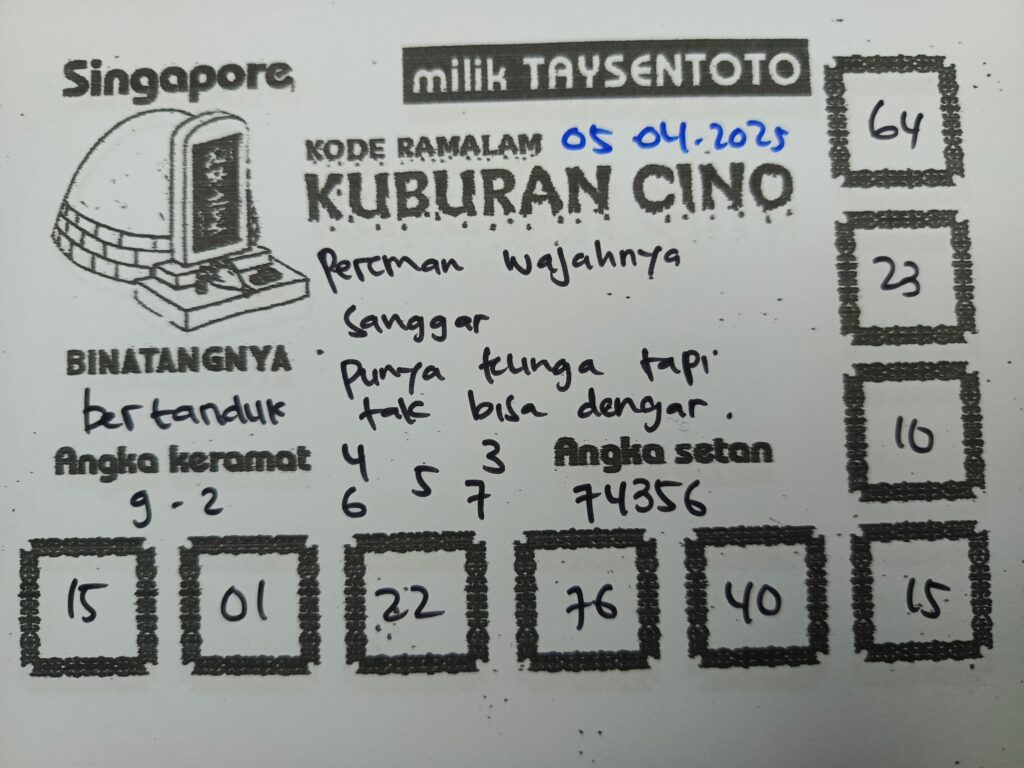 Singapore
milik TAYSENTOTO
KODE RAMALAM 05 04.2025
KUBURAN CINO
Pereman wajahnya
sanggar
punya telinga tapi
tak bisa dengar.
BINATANGNYA
bertanduk
Angka keramat
9 - 2
4 3
5
6 7
Angka setan
74356
64
23
10
15 01 22 76 40 15